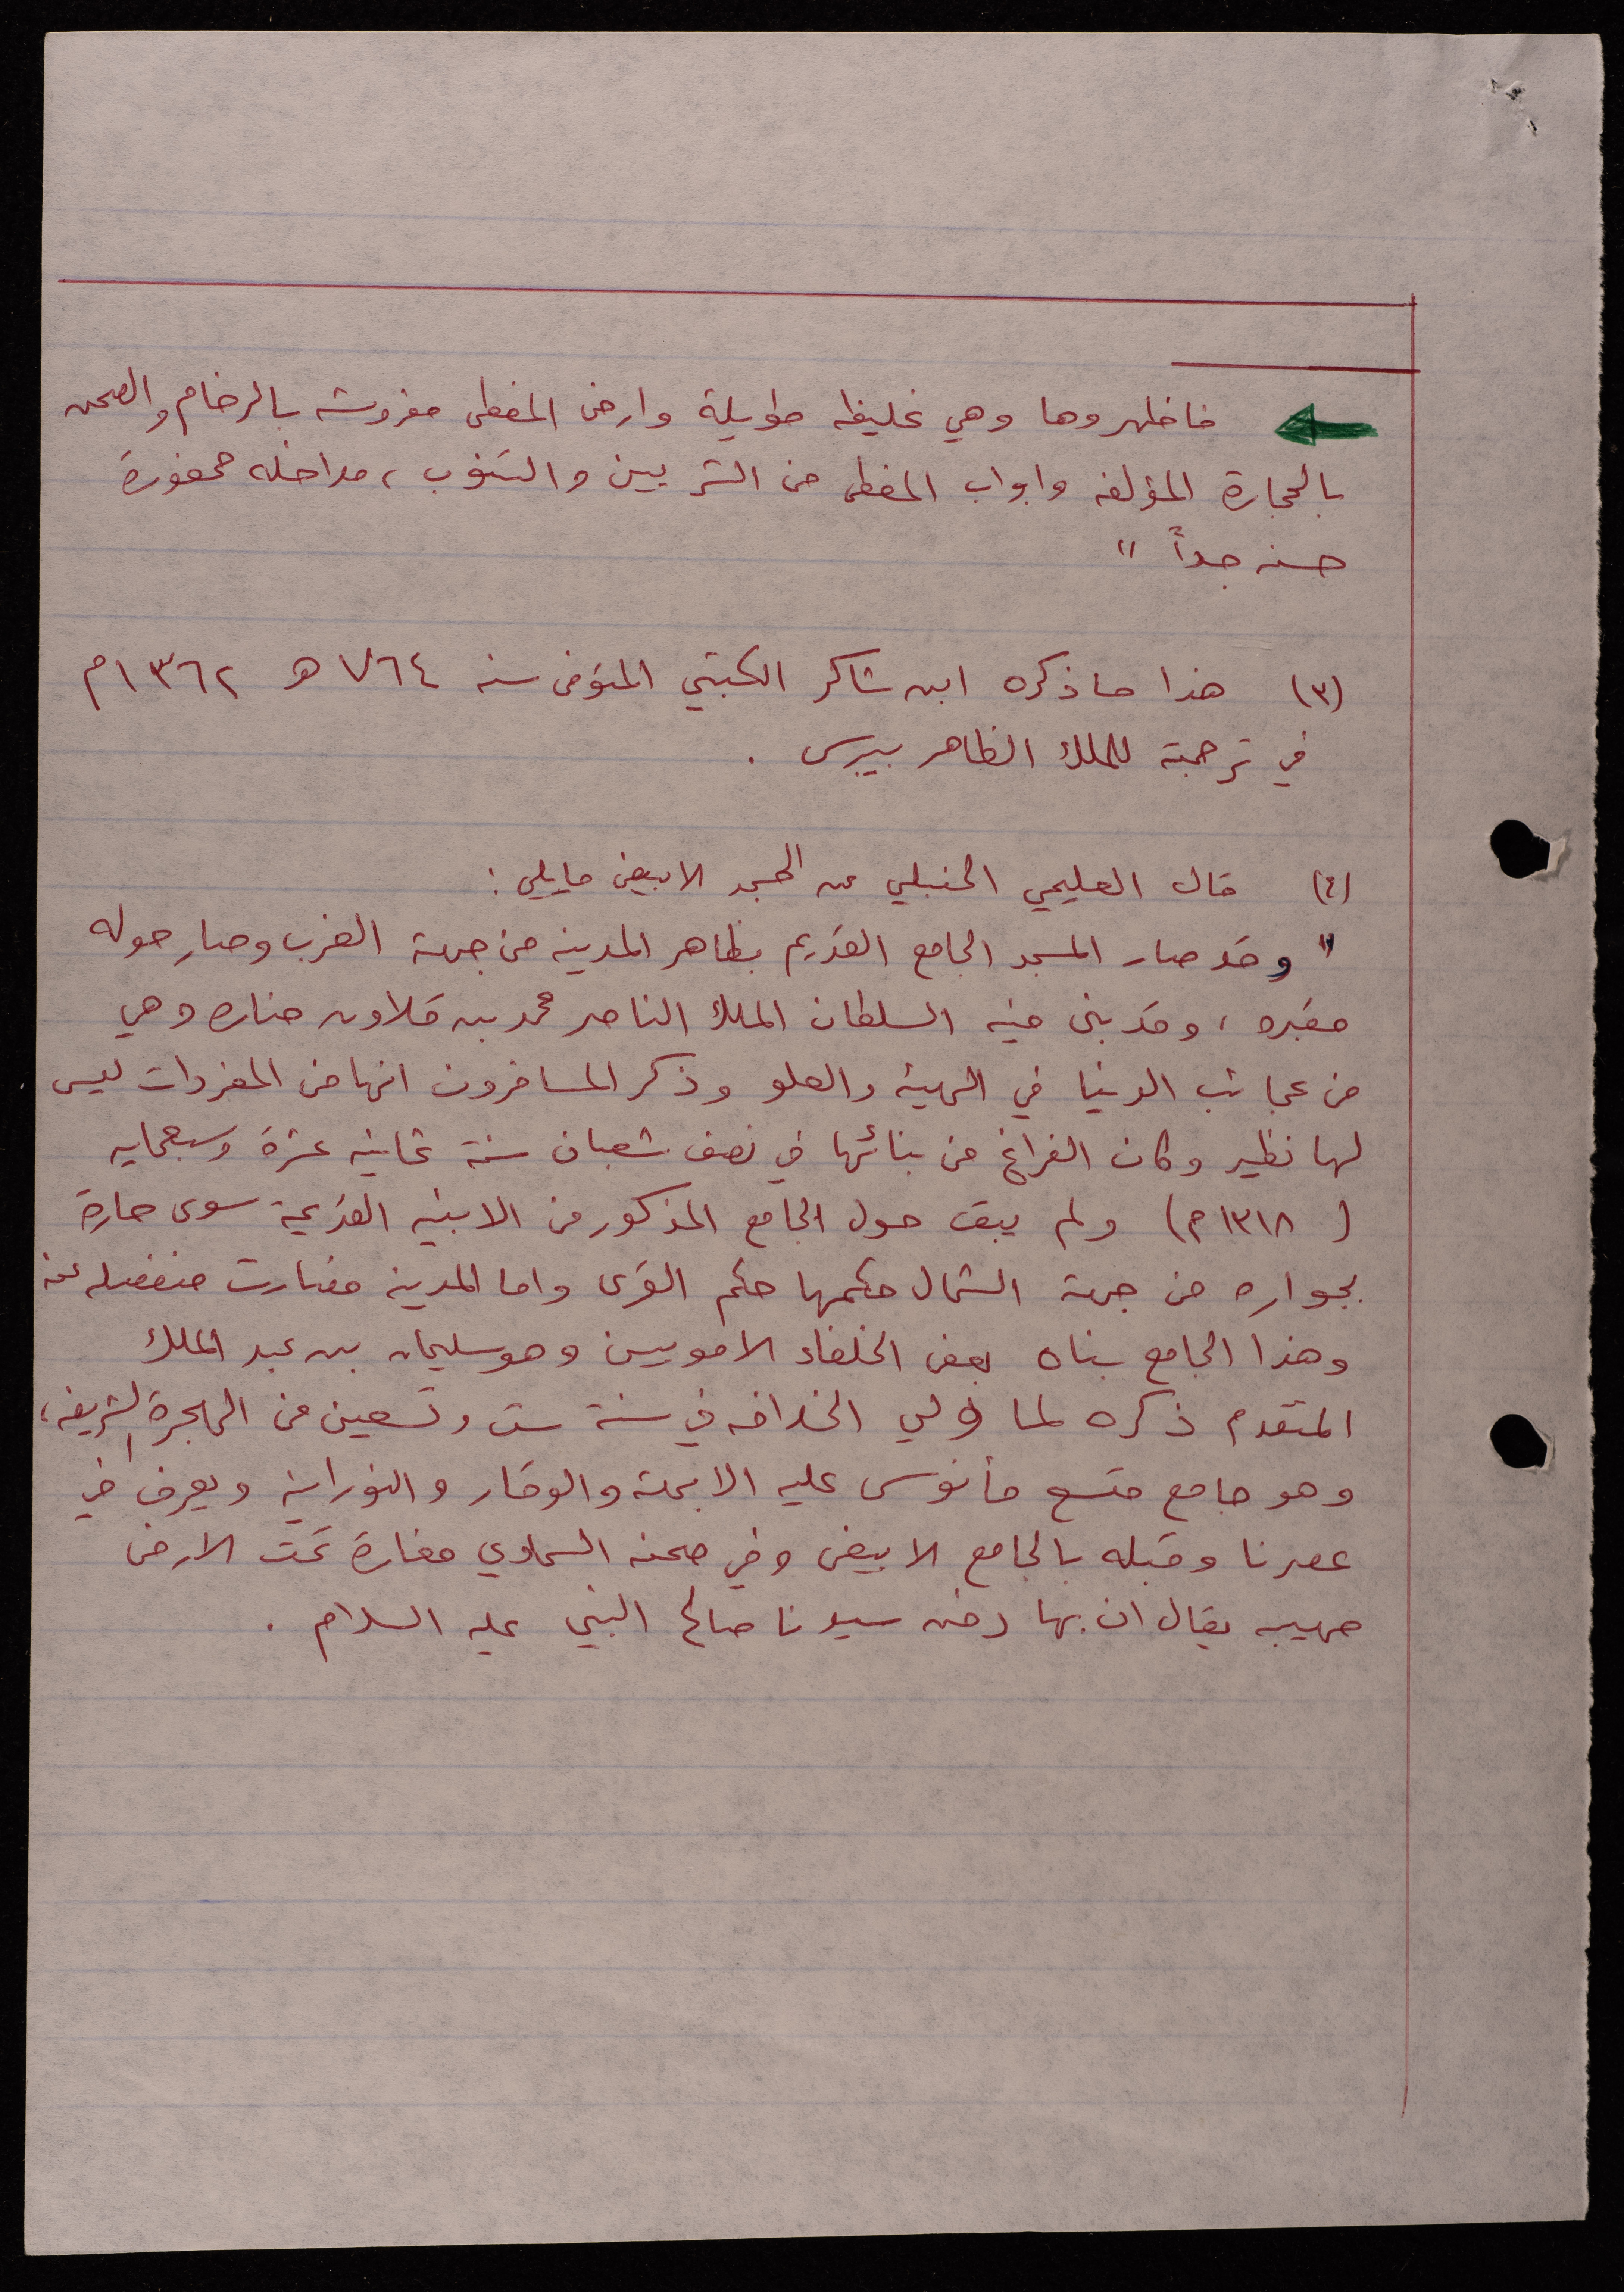 فاظهروها وهي غليظه طويلة وارض المغطى مفروشه بالرخام والصحن
بالحجارة المؤلفه وابواب المغطى من الشربين والتنوب، مداخله محفورة
حسنه جداً "
(٣) هذا ماذكره ابن شاكر الكتبي المتوفى سنه ٧٦٤ هـ ١٣٦٢م
في ترجمته للملك الظاهر بيبرس .
(٤) قال العليمي الحنبلي عن المسجد الابيض مايلي :
" وقد صار المسجد الجامع القديم بظاهر المدينه من جهة الغرب وصار حوله
مقبره ، وقد بنى فيه السلطان الملك الناصر محمد بن قلاون مناره وهي
من عجائب الدنيا في الهيئه والعلو وذكر المسافرون انها من المفردات ليس
لها نظير وكان الفراغ من بنائها في نصف شعبان سنة ثمانيه عشرة وسبعمايه
( ١٣١٨م) ولم يبق حول الجامع المذكور من الابنيه القديمة سوى حارة
بجواره من جهة الشمال حكمها حكم القرى واما المدينه فصارت منفصله عنه
وهذا الجامع بناه بعض الخلفاء الامويين وهو سليمان بن عبد الملك
المتقدم ذكره لما ولي الخلافه في سنة ست وتسعين من الهجرة الشريفه،
وهو جامع متسع مأنوس عليه الابهة والوقار والنورانيه ويعرف في
عصرنا وقبله بالجامع الابيض وفي صحنه السماوي مغارة تحت الارض
مهيبه يقال ان بها دفن سيدنا صالح النبي عليه السلام .